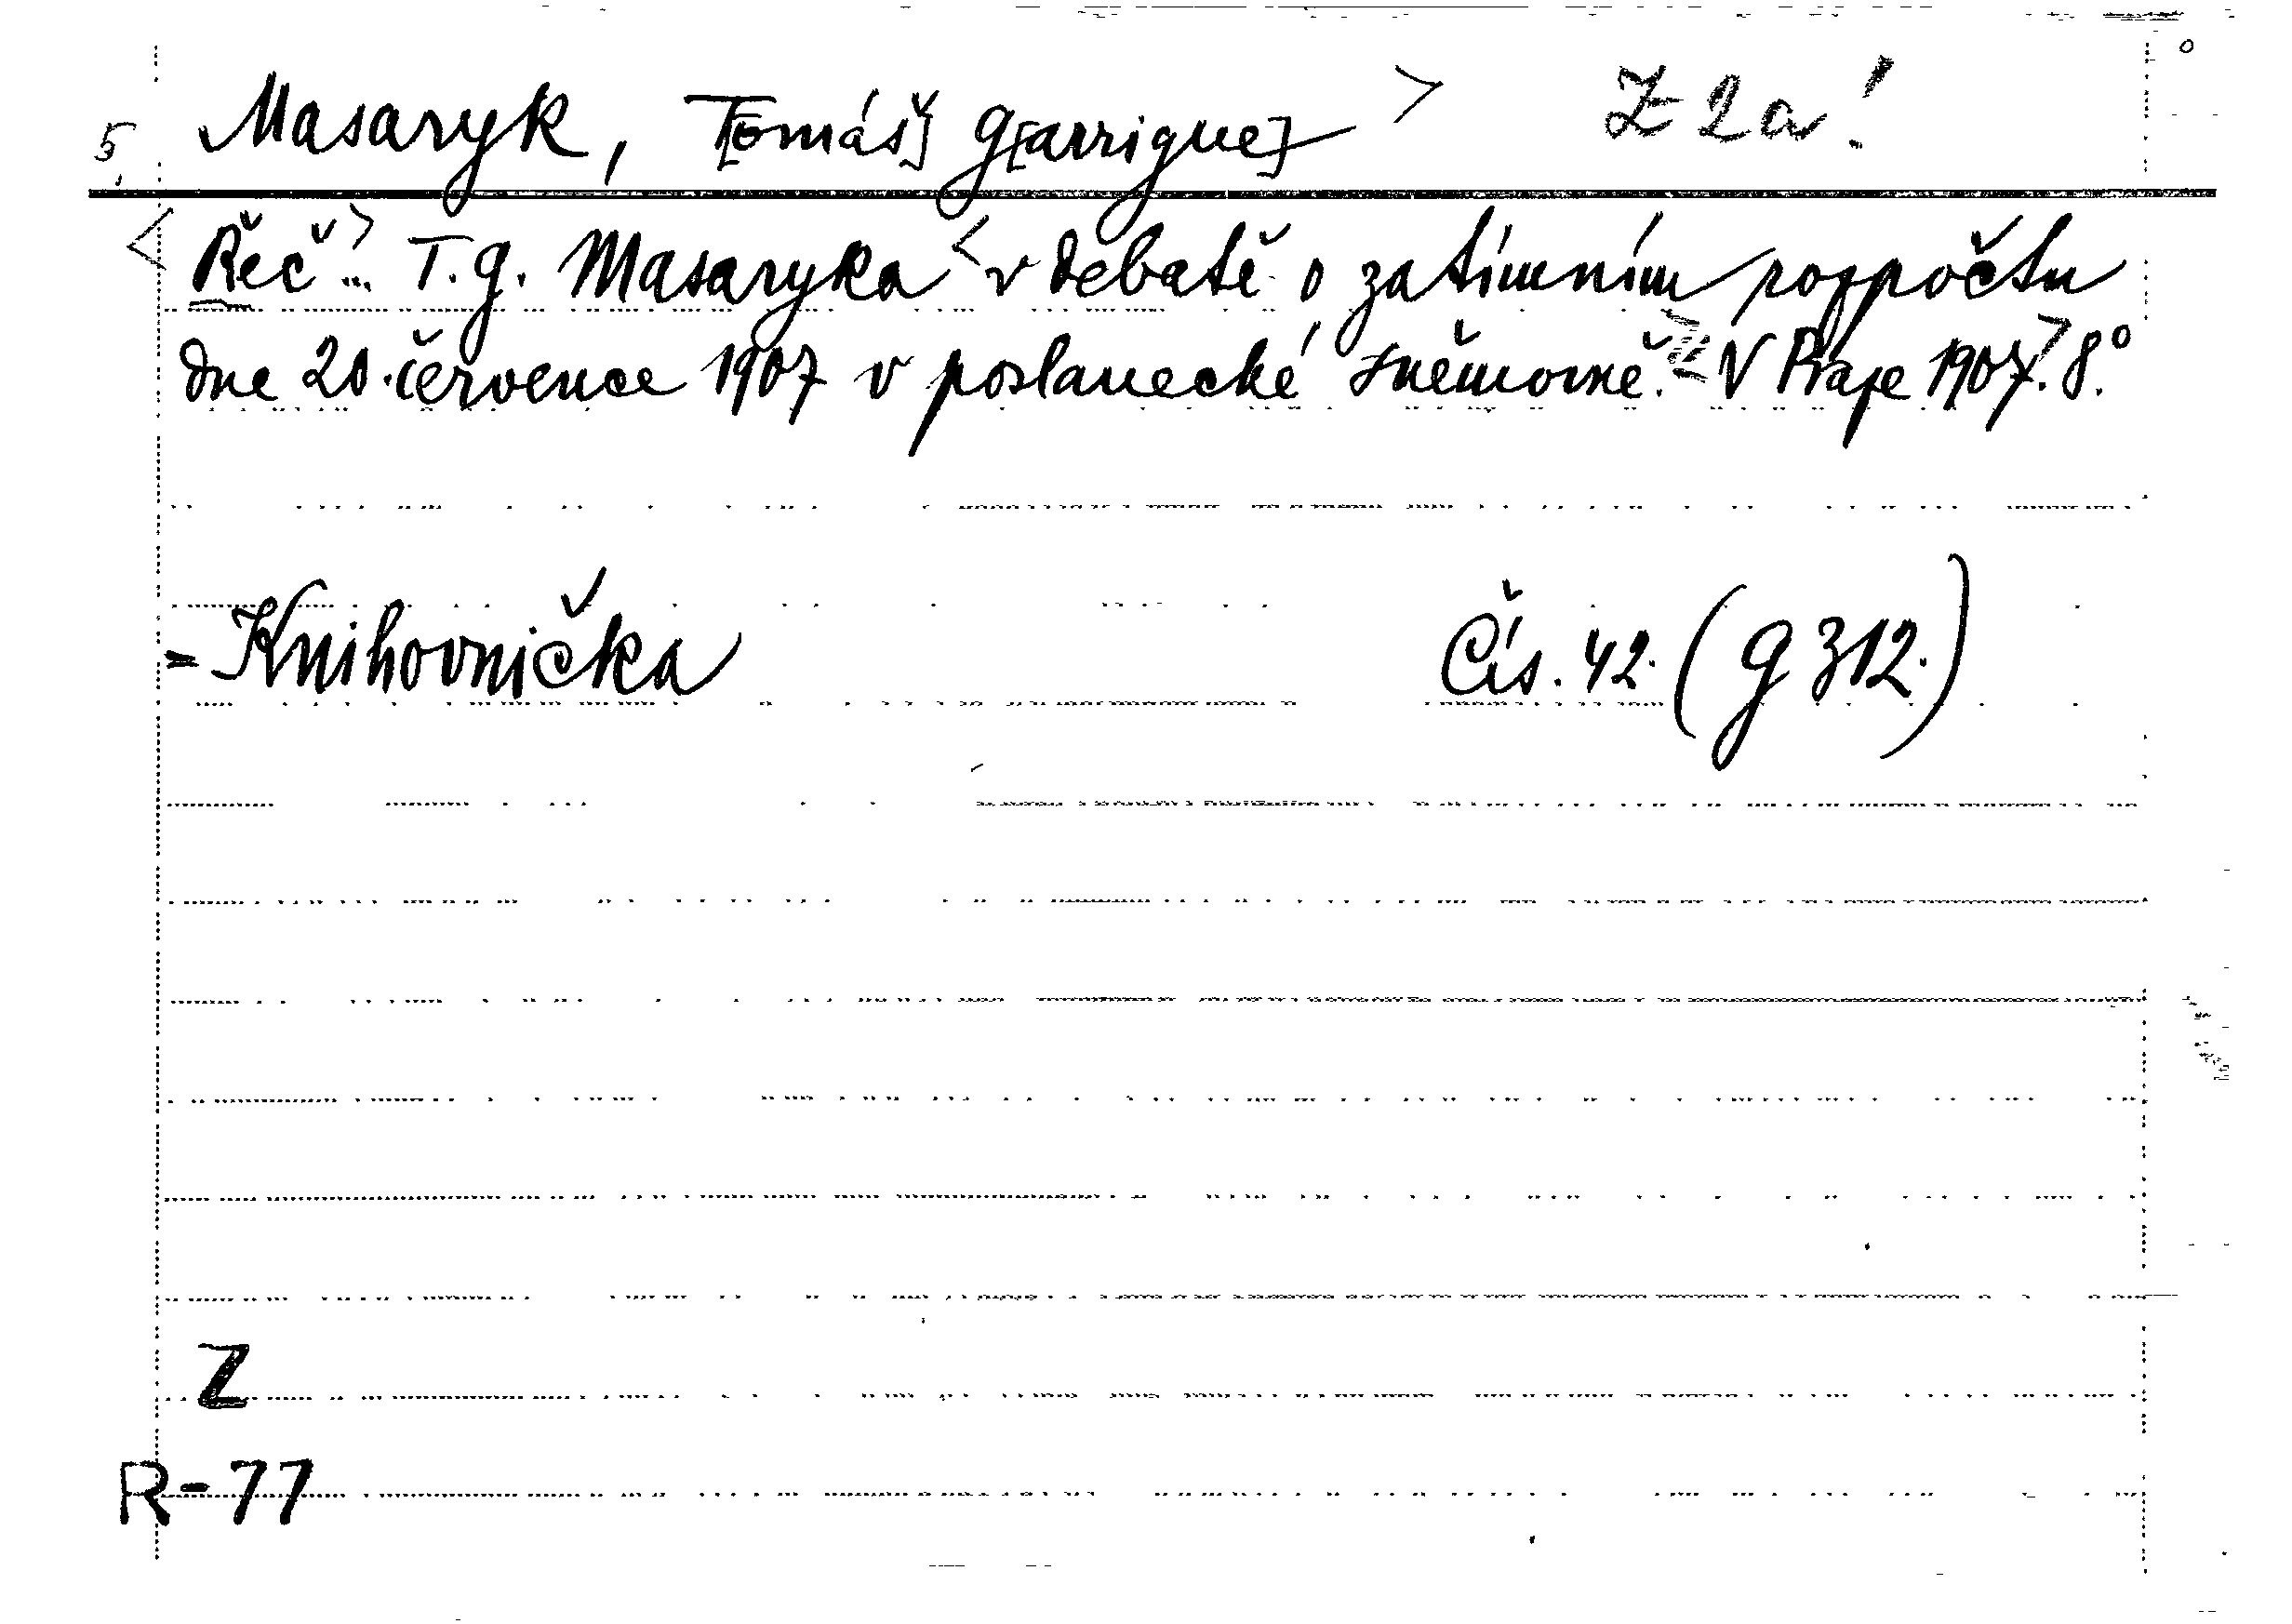 5, Masaryk, T[omáš] G[arrigue] > Z 2a!
<Řeč...> T. G. Masaryka < v debatě o zatímním rozpočtu
dne 20. července 1907 v poslanecké sněmovně. V Praze 1907>. 8.°
= Knihovnička Čís. 42. (G 312.)
Z
R-77